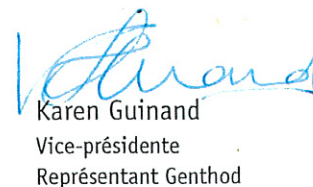 Karen Guinand
Vice-présidente
Représentant Genthod